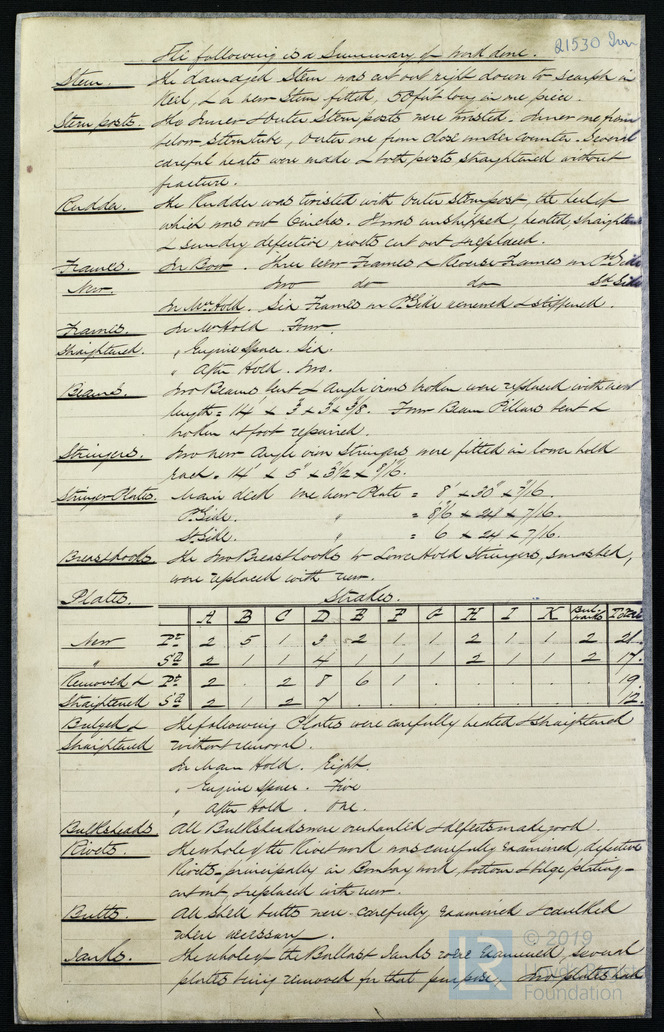 21530 Iron
The following is a Summary of Work done.
Stem. The damaged Stem was cut out right down to Scarph in
Keel, & a new Stem fitted, 50 feet long in one piece.
Stern posts. The Inner & Outer Stern posts were twisted. Inner one from
below Stern tube, Outer one from close under counter. Several
careful heats were made & both posts straightened without
fracture.
Rudder. The Rudder was twisted with Outer Sternpost, the heel of
which was out 6 inches. It was unshipped, heated, straightened
& sundry defective rivets cut out & replaced.
Frames. In Bow. Three new Frames & Reverse Frames in Pt Side
New. Two do do Sd Side
In Mn Hold. Six Frames in Pt Side renewed & stiffened.
Frames. In Mn Hold. Four.
Straightened. " Engine Space. Six.
" After Hold. Two.
Beams. Two Beams bent & Angle irons broken were replaced with new
length = 14 x 3 x 3 x 3/8. Four Beam Pillars bent &
broken at foot repaired.
Stringers. Two new Angle iron Stringers were fitted in lower hold
each = 14' x 5" x 3 1/2 x 8/16.
Stringer Plates. Main deck one new Plate = 8' x 30" x 7/16.
Pt Side. " = 8/6 x 24 x 7/16.
St Side. " = 6 x 24 x 7/16.
Breasthooks The Two Breasthooks to Lower Hold Stringers, smashed,
were replaced with new.
Plates. Strakes.
A B C D E F G H I K Bulwarks Total
New Pt 2 5 1 3 2 1 1 2 1 1 2 21.
" Sd 2 1 1 4 1 1 2 1 1 2 17.
Removed & Pt 2 . 2 8 6 1 . . . . . 19
Straightened Sd 2 1 2 7 . . . . . . . 12.
Bulged & The following Plates were carefully heated & straightened
Straightened without removal.
In Main Hold. Eight.
" Engine Space. Five
" After Hold. One.
Bulkheads All Bulkheads were overhauled & defects made good.
Rivets. The whole of the Rivet work was carefully examined, defective
Rivets - principally in Bombay work, bottom & bilge plating -
cut out, & replaced with new.
Butts. All shell butts were carefully examined & caulked
where necessary.
Tanks. The whole of the Ballast Tanks were Examined, several
plates being removed for that purpose. Two plates had
© 2019
Foundation